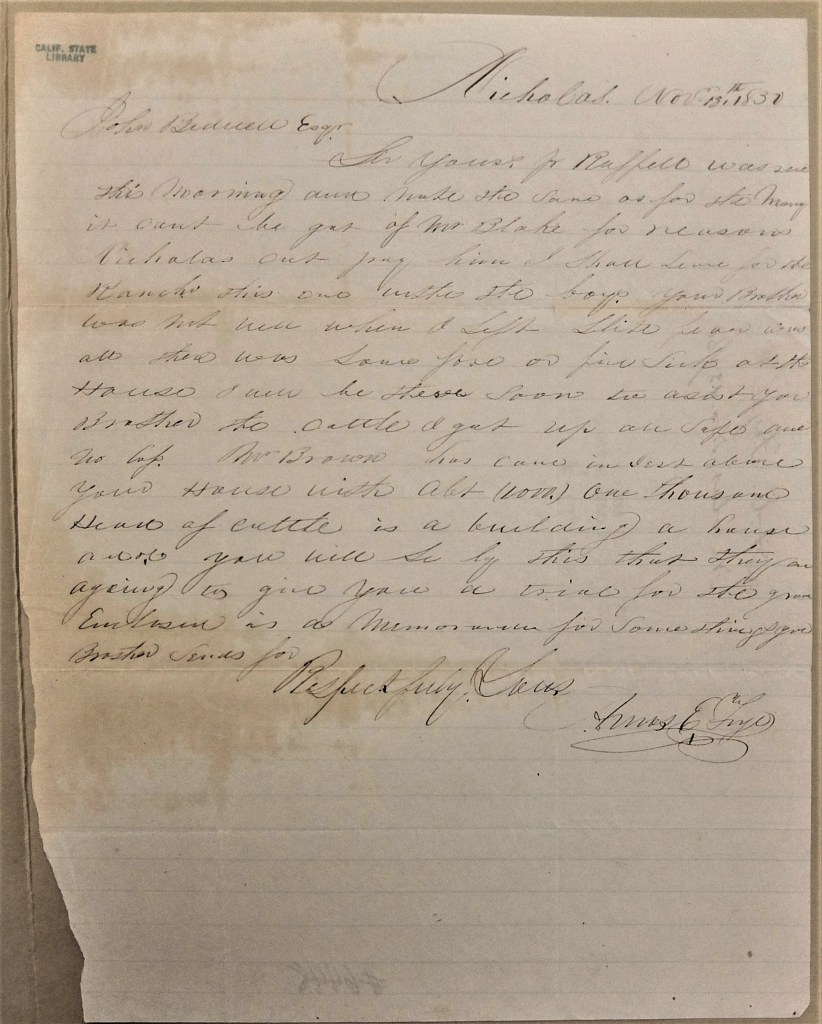 CALIF. STATE
LIBRARY
Nicholas. Nov. 13th, 1850
John Bidwell Esqr
Sir Yours pr Raffell was
this Morning and note the same as for the
it cant be got of Mr Blake for reasons
Nicholas cnt pay him I shall leave for the
Ranch this one with the boy. Your Brother
was not well when I left
all there was some fore or five Sick at the
House I will be there soon to asist your
Brother the cattle I got up all safe and
no los. Mr Brown has came in Jest above
your House with abt (1000.) One thousand
Head of cattle is a building a house
and you will se by this that they are
agoing to give you a trial for the
Enclosed is a Memorandum for some things your
Brother sends for
Respectfully, Yours
Amos E Frye